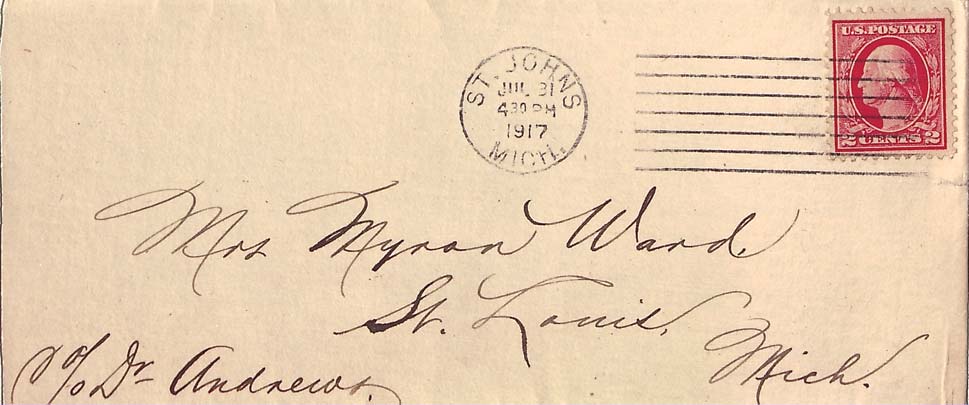 U.S. POSTAGE
2 CENTS 2
ST. JOHNS
JUL 31
4 30 PM
1917
MICH.
Mrs Myron Ward.
St. Louis,
Mich.
c/o Dr Andrews.